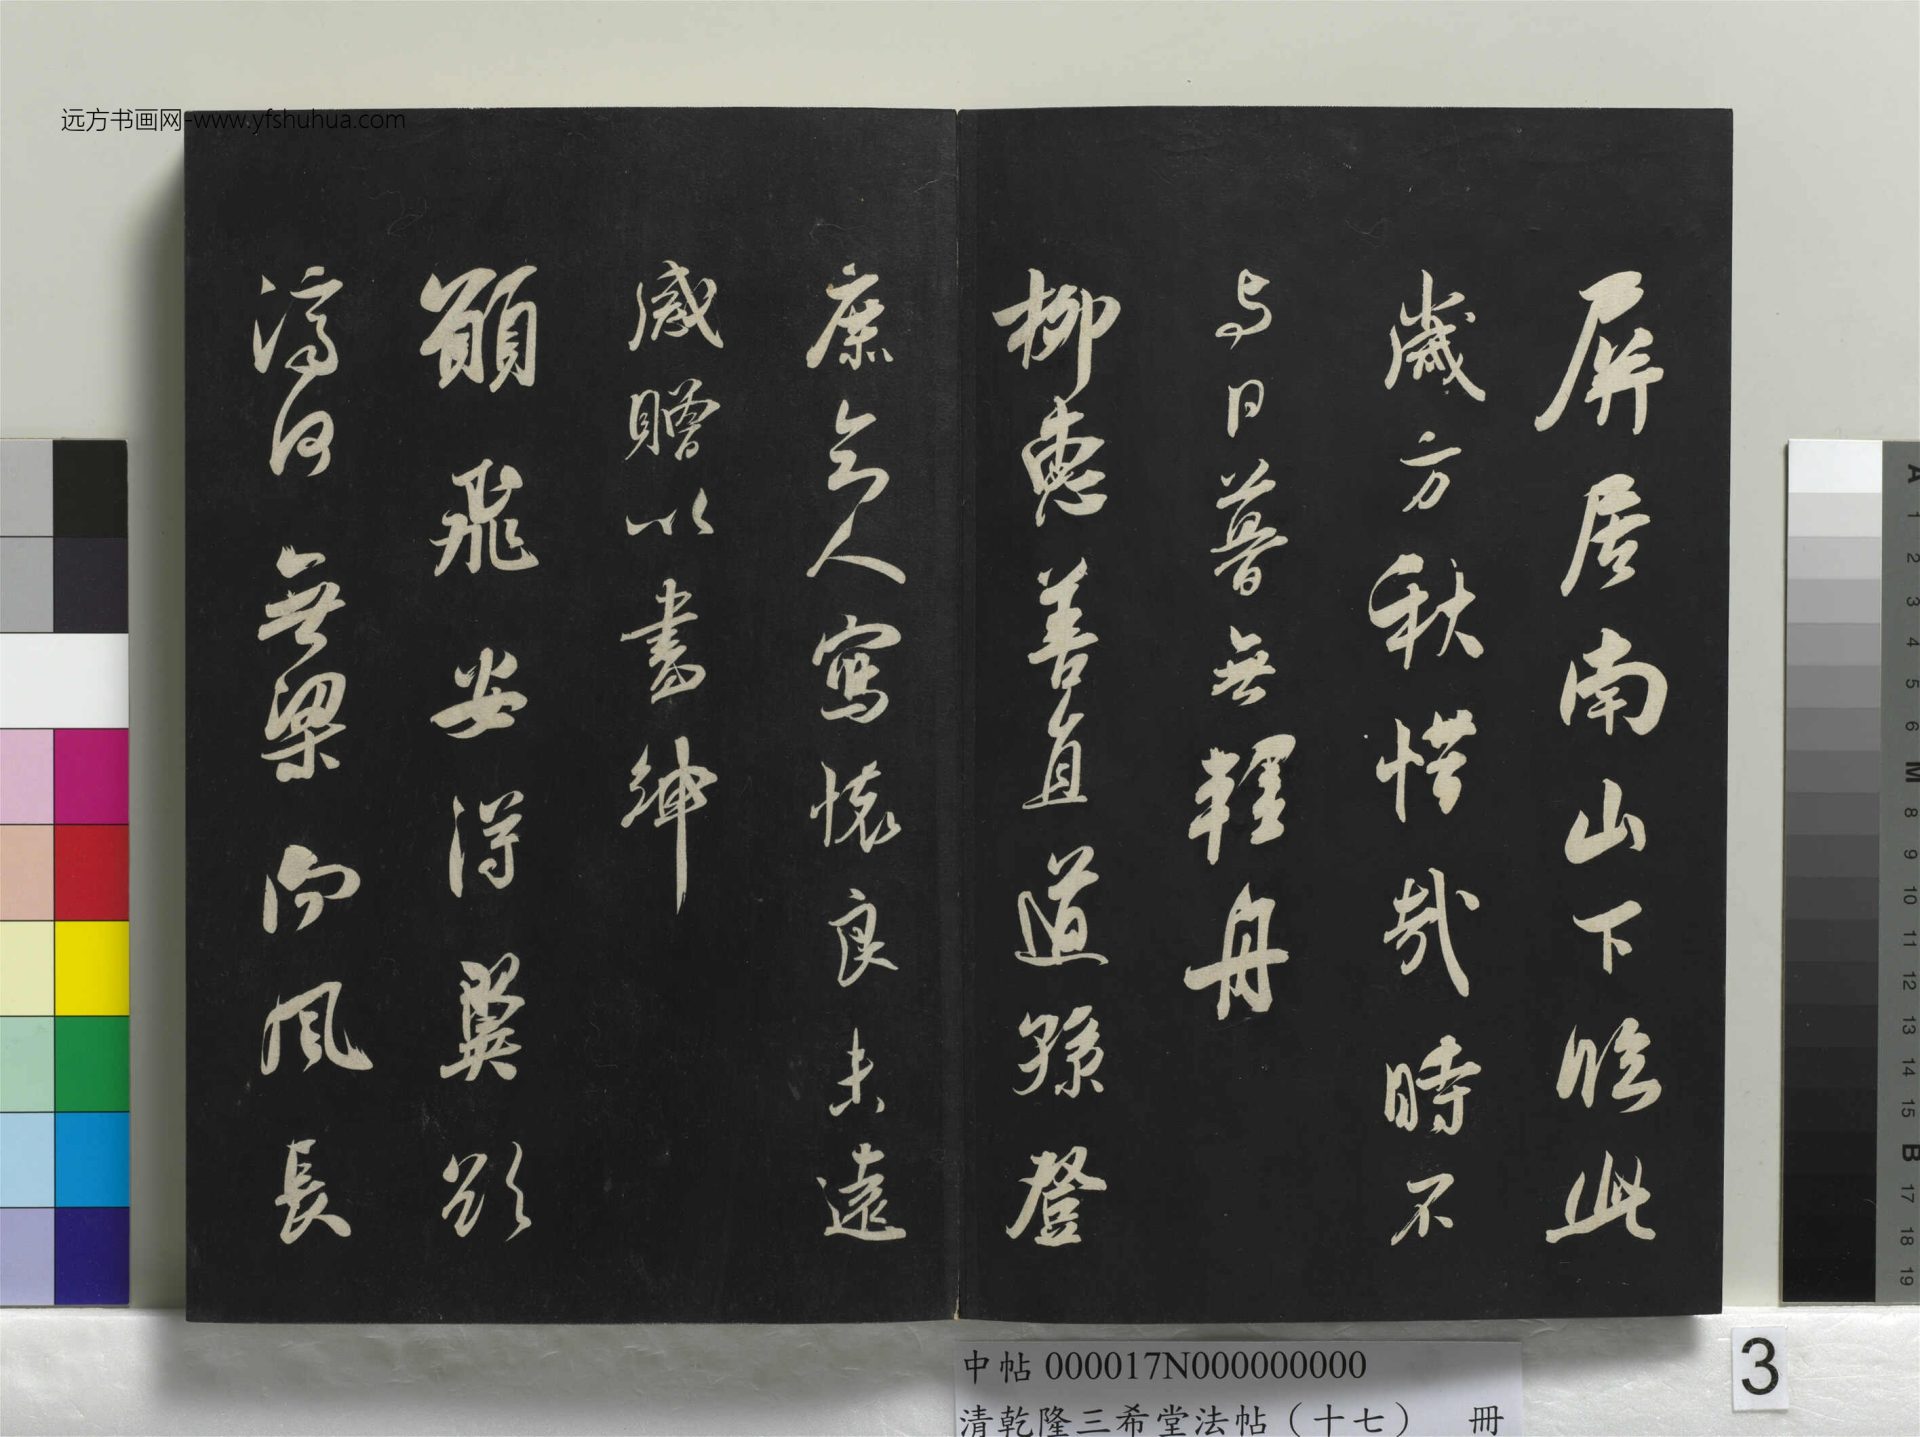 远方书画网-www.yfshuhua.com
屏居南山下臨此
歲方秋惜哉時不
与日暮無輕舟
柳惠善直道孫登
庶知人寫懷良未遠
感贈以書紳
願飛安得翼欲
濟河無梁向風長
A 1 2 3 4 5 6 M 8 9 10 11 12 13 14 15 B 17 18 19
3
中帖 000017N000000000
清乾隆三希堂法帖（十七） 冊